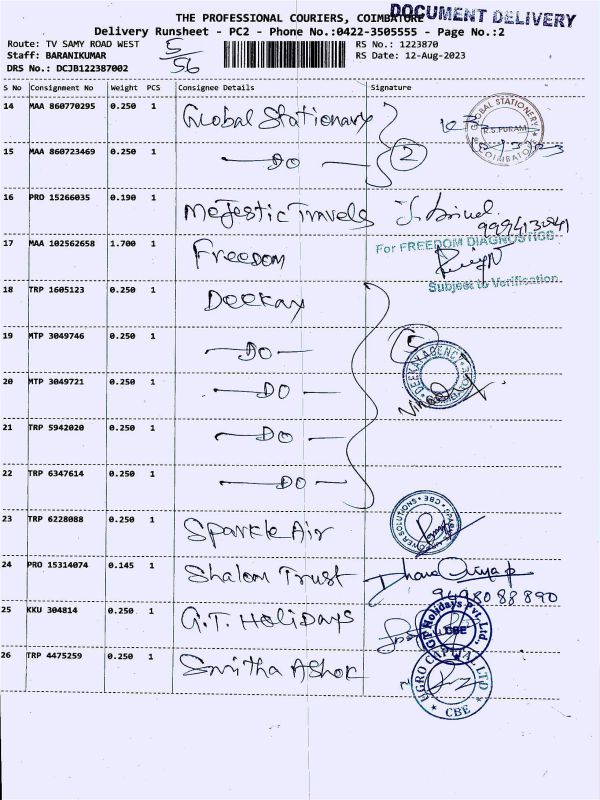 THE PROFESSIONAL COURIERS, COIMBATORE
DOCUMENT DELIVERY
Delivery Runsheet - PC2 - Phone No.:0422-3505555 - Page No.:2
Route: TV SAMY ROAD WEST 5/56 RS No.: 1223870
Staff: BARANIKUMAR RS Date: 12-Aug-2023
DRS No.: DCJB122387002
S No Consignment No Weight PCS Consignee Details Signature
14 MAA 860770295 0.250 1 Global Stationary GLOBAL STATIONERY R.S.PURAM COIMBATORE
15 MAA 860723469 0.250 1 DO 2
16 PRO 15266035 0.190 1 Majestic Travels
17 MAA 102562658 1.700 1 Freedom For FREEDOM DIAGNOSTICS
Subject to Verification
18 TRP 1605123 0.250 1 Deekay
19 MTP 3049746 0.250 1 DO 5 DEEKAY AGENCY
20 MTP 3049721 0.250 1 DO
21 TRP 5942020 0.250 1 DO
22 TRP 6347614 0.250 1 DO
23 TRP 6228088 0.250 1 Sparkle Air
24 PRO 15314074 0.145 1 Shalom Trust
9498088890
25 KKU 304814 0.250 1 G.T. Holidays GT Holidays Pvt. Ltd. CBE
26 TRP 4475259 0.250 1 Smitha Ashok UGRO CAPITAL LTD CBE